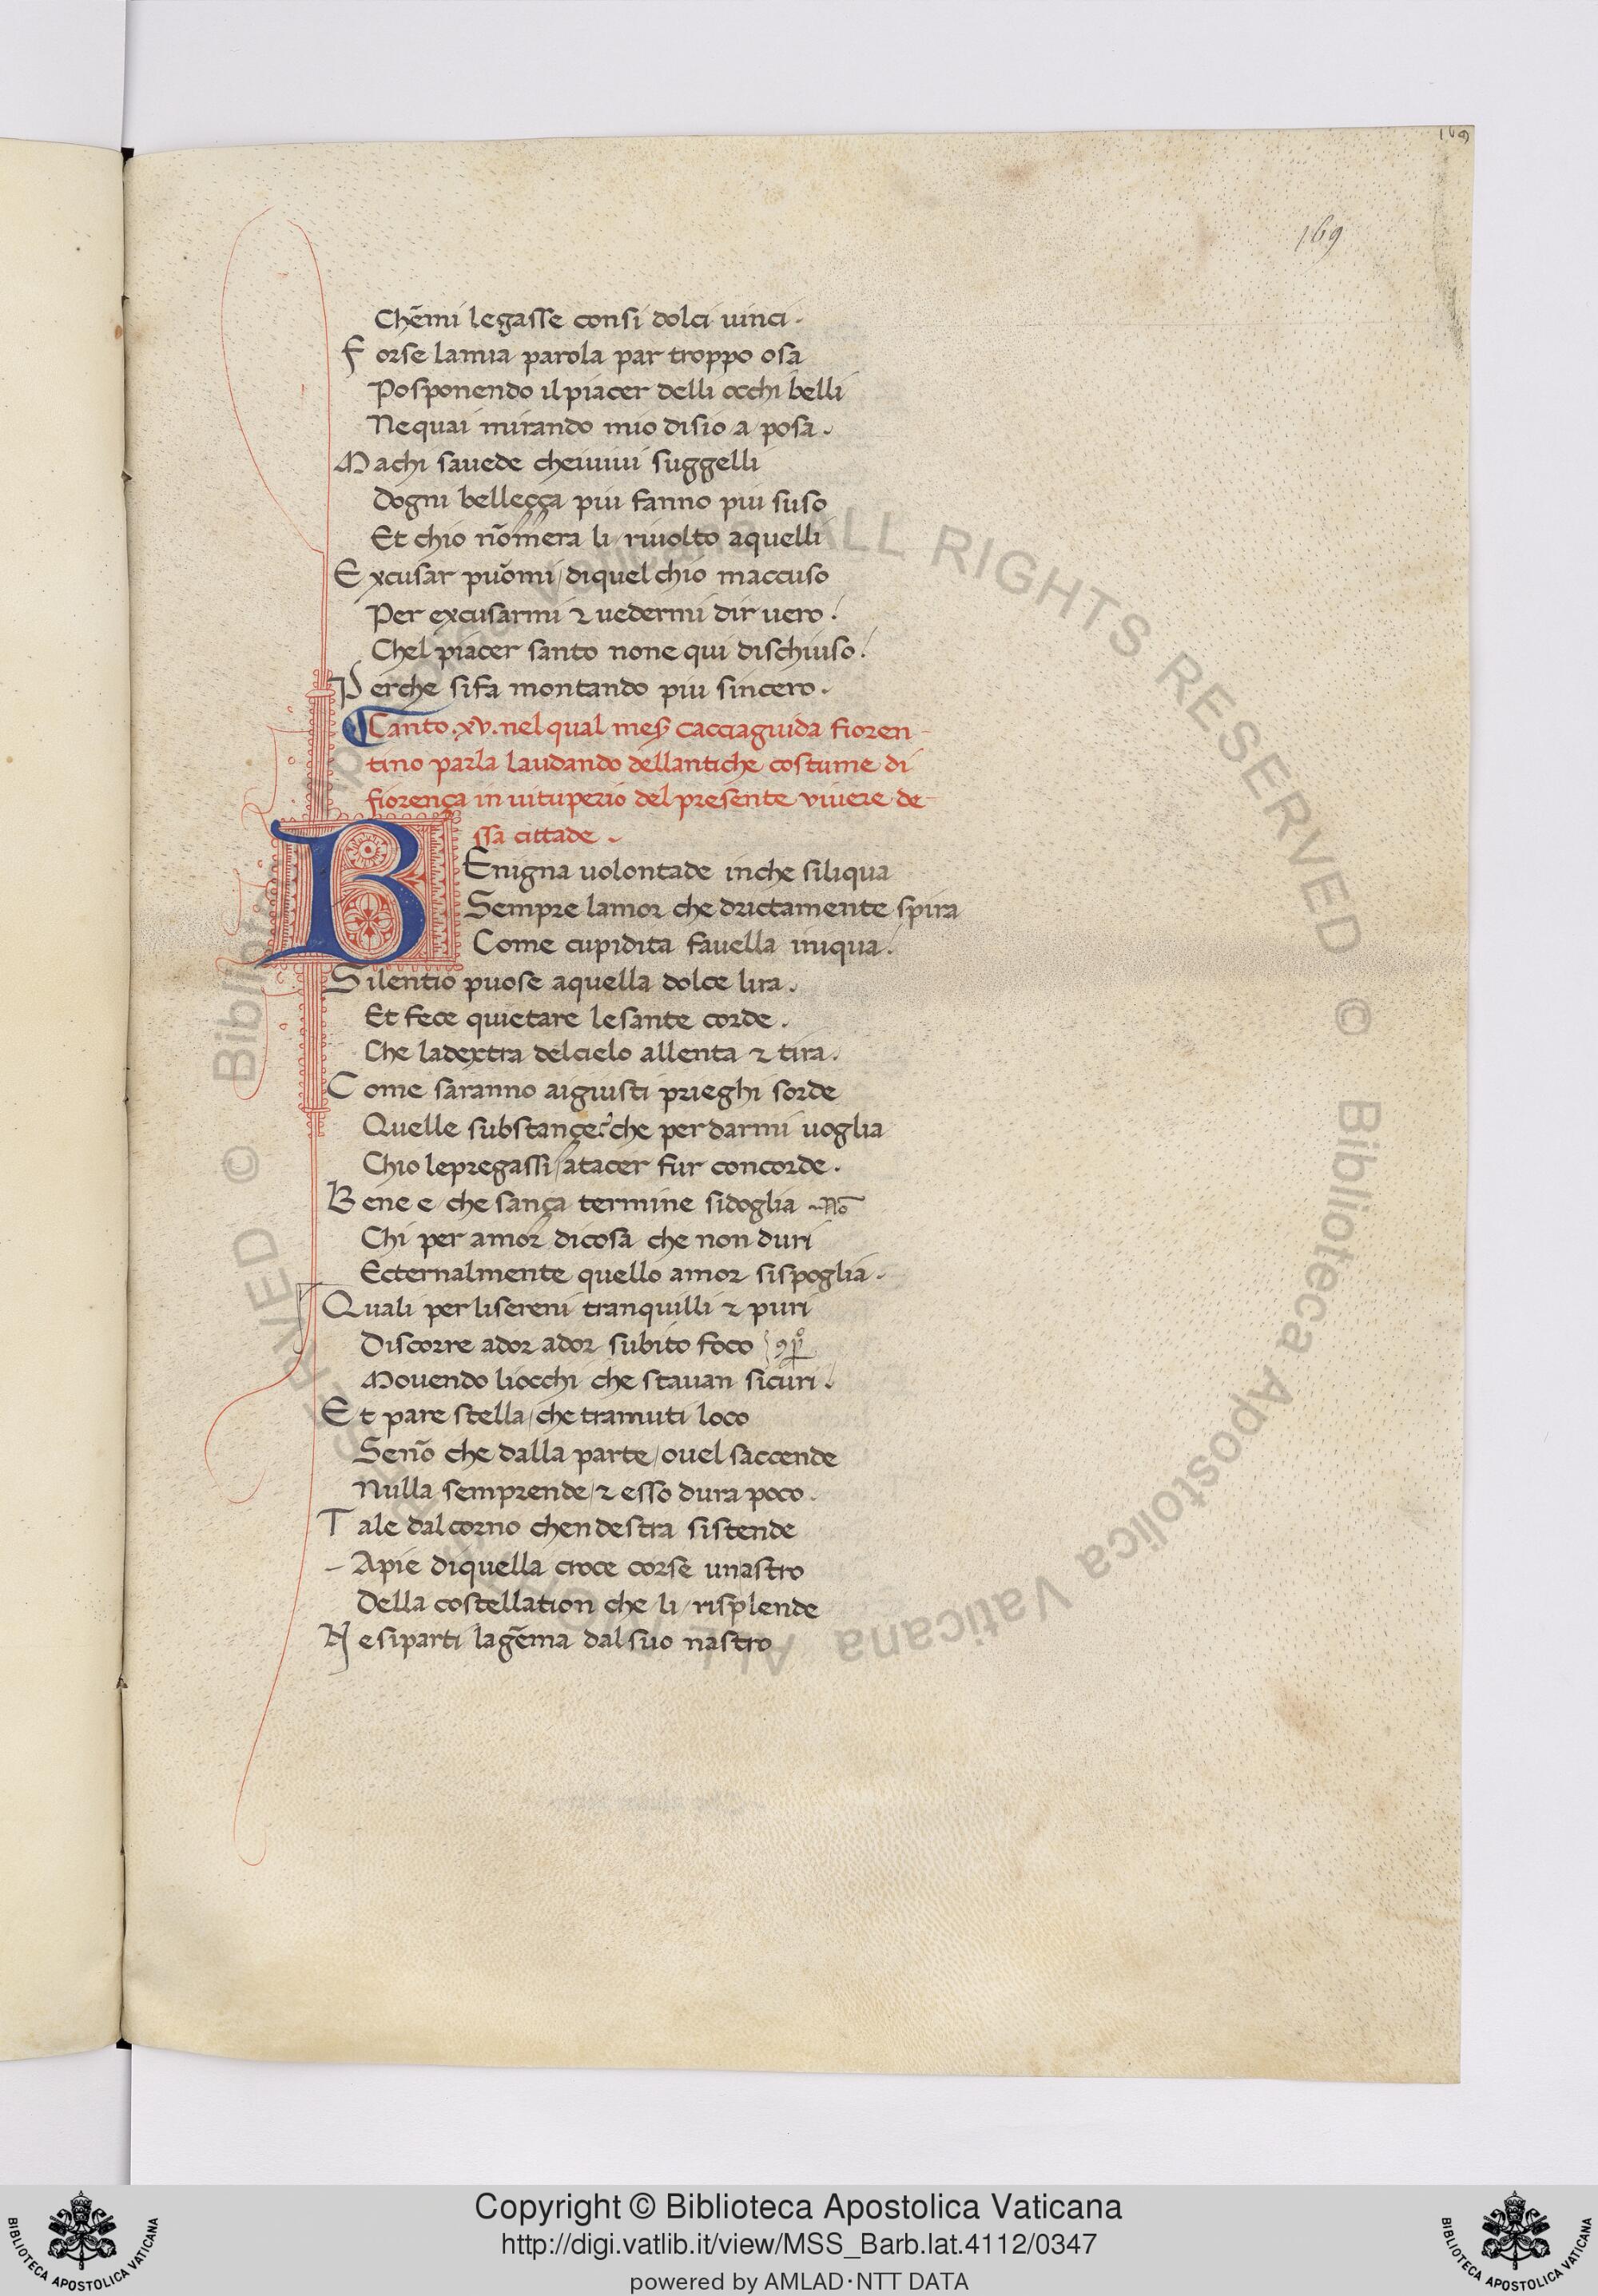 169
169
Chēmi legasse consi dolci vinci.
Forse lamia parola par troppo osa
Posponendo ilpiacer delli occhi belli
Nequai mirando mio disio a posa.
Machi savede cheivivi suggelli
Dogni belleçça piu fanno piu suso
Et chio nōmera li rivolto aquelli
Excusar puōmi/diquel chio maccuso
Per excusarmi & vedermi dir vero/
Chel piacer santo none qui dischiuso/
Perche sifa montando piu sincero.
Canto.xv.nel qual mes̄ Cacciaguida fioren-
tino parla laudando dellantiche costume di
fiorença in vituperio del presente vivere de-
ssa cittade.
BEnigna volontade inche siliqua
Sempre lamor che drictamente spira
Come cupidita favella iniqua/
Silentio puose aquella dolce lira.
Et fece quietare lesante corde.
Che ladextra delcielo allenta & tira.
Come saranno aigiusti prieghi sorde
Quelle substançe: che perdarmi voglia
Chio lepregassi/atacer fur concorde.
Bene e che sança termine sidoglia Nō
Chi per amor dicosa che non duri
Ecternalmente quello amor sispoglia.
Quali perlisereni tranquilli & puri
Discorre ador ador subito foco
Movendo liocchi che stavan sicuri/
Et pare stella/che tramuti loco
Senō che dalla parte/ovel saccende
Nulla semprende/& esso dura poco.
Tale dalcorno chendestra sistende
-Apie diquella croce corse unastro
Della costellation che li risplende
Ne siparti lagēma dalsuo nastro
© Biblioteca Apostolica Vaticana ALL RIGHTS RESERVED © Biblioteca Apostolica Vaticana ALL RIGHTS RESERVED
Copyright © Biblioteca Apostolica Vaticana
http://digi.vatlib.it/view/MSS_Barb.lat.4112/0347
powered by AMLAD·NTT DATA
BIBLIOTECA APOSTOLICA VATICANA
BIBLIOTECA APOSTOLICA VATICANA